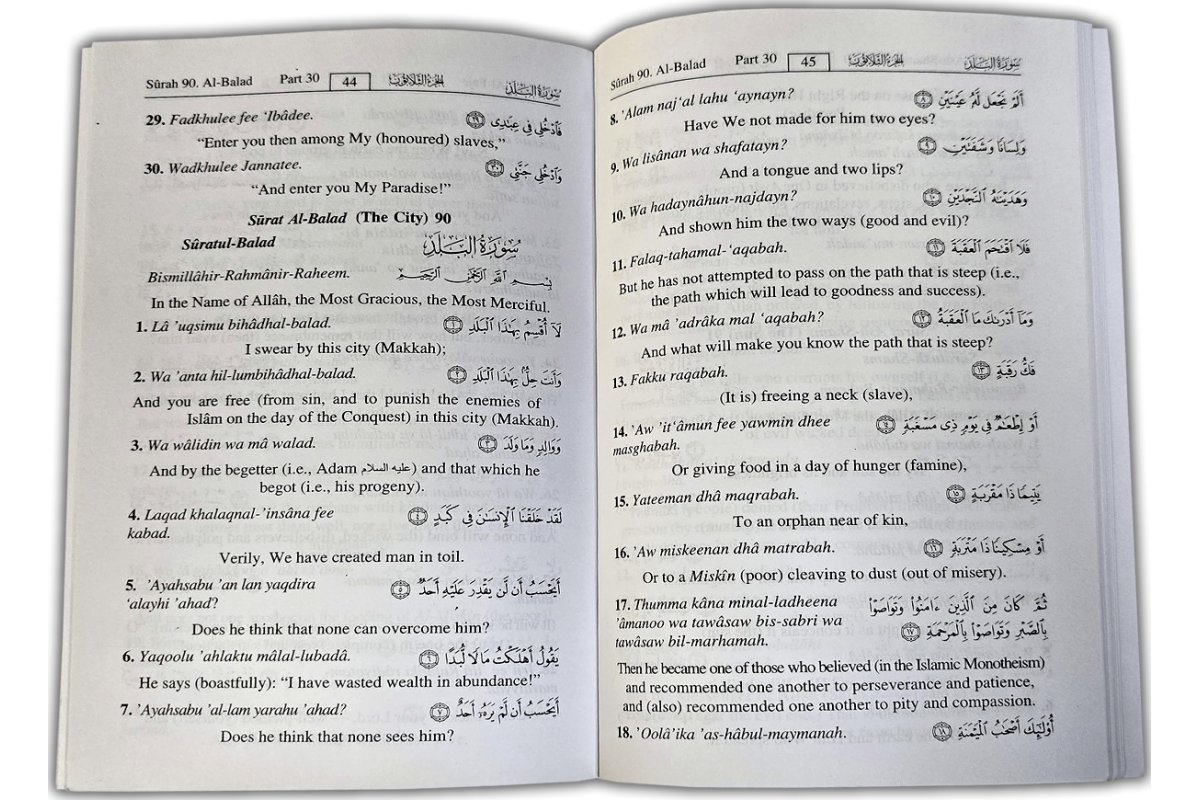 Sûrah 90. Al-Balad Part 30 44 الجزء الثلاثون سورة البلد
29. Fadkhulee fee ‘Ibâdee. فَٱدْخُلِى فِى عِبَـٰدِى ٢٩
“Enter you then among My (honoured) slaves,”
30. Wadkhulee Jannatee. وَٱدْخُلِى جَنَّتِى ٣٠
“And enter you My Paradise!”
Sûrat Al-Balad (The City) 90
Sûratul-Balad سُورَةُ الْبَلَدِ
Bismillâhir-Rahmânir-Raheem. بِسْمِ اللَّهِ الرَّحْمَـٰنِ الرَّحِيمِ
In the Name of Allâh, the Most Gracious, the Most Merciful.
1. Lâ ’uqsimu bihâdhal-balad. لَآ أُقْسِمُ بِهَـٰذَا ٱلْبَلَدِ ١
I swear by this city (Makkah);
2. Wa ’anta hil-lumbihâdhal-balad. وَأَنتَ حِلٌّۢ بِهَـٰذَا ٱلْبَلَدِ ٢
And you are free (from sin, and to punish the enemies of
Islâm on the day of the Conquest) in this city (Makkah).
3. Wa wâlidin wa mâ walad. وَوَالِدٍ وَمَا وَلَدَ ٣
And by the begetter (i.e., Adam عليه السلام) and that which he
begot (i.e., his progeny).
4. Laqad khalaqnal-’insâna fee لَقَدْ خَلَقْنَا ٱلْإِنسَـٰنَ فِى كَبَدٍ ٤
kabad.
Verily, We have created man in toil.
5. ’Ayahsabu ’an lan yaqdira أَيَحْسَبُ أَن لَّن يَقْدِرَ عَلَيْهِ أَحَدٌ ٥
‘alayhi ’ahad?
Does he think that none can overcome him?
6. Yaqoolu ’ahlaktu mâlal-lubadâ. يَقُولُ أَهْلَكْتُ مَالًا لُّبَدًا ٦
He says (boastfully): “I have wasted wealth in abundance!”
7. ’Ayahsabu ’al-lam yarahu ’ahad? أَيَحْسَبُ أَن لَّمْ يَرَهُۥٓ أَحَدٌ ٧
Does he think that none sees him?
Sûrah 90. Al-Balad Part 30 45 الجزء الثلاثون سورة البلد
8. ’Alam naj‘al lahu ‘aynayn? أَلَمْ نَجْعَل لَّهُۥ عَيْنَيْنِ ٨
Have We not made for him two eyes?
9. Wa lisânan wa shafatayn? وَلِسَانًا وَشَفَتَيْنِ ٩
And a tongue and two lips?
10. Wa hadaynâhun-najdayn? وَهَدَيْنَـٰهُ ٱلنَّجْدَيْنِ ١٠
And shown him the two ways (good and evil)?
11. Falaq-tahamal-‘aqabah. فَلَا ٱقْتَحَمَ ٱلْعَقَبَةَ ١١
But he has not attempted to pass on the path that is steep (i.e.,
the path which will lead to goodness and success).
12. Wa mâ ’adrâka mal ‘aqabah? وَمَآ أَدْرَىٰكَ مَا ٱلْعَقَبَةُ ١٢
And what will make you know the path that is steep?
13. Fakku raqabah. فَكُّ رَقَبَةٍ ١٣
(It is) freeing a neck (slave),
14. ’Aw ’it‘âmun fee yawmin dhee أَوْ إِطْعَـٰمٌ فِى يَوْمٍ ذِى مَسْغَبَةٍ ١٤
masghabah.
Or giving food in a day of hunger (famine),
15. Yateeman dhâ maqrabah. يَتِيمًا ذَا مَقْرَبَةٍ ١٥
To an orphan near of kin,
16. ’Aw miskeenan dhâ matrabah. أَوْ مِسْكِينًا ذَا مَتْرَبَةٍ ١٦
Or to a Miskîn (poor) cleaving to dust (out of misery).
17. Thumma kâna minal-ladheena ثُمَّ كَانَ مِنَ ٱلَّذِينَ ءَامَنُوا۟ وَتَوَاصَوْا۟
’âmanoo wa tawâsaw bis-sabri wa بِٱلصَّبْرِ وَتَوَاصَوْا۟ بِٱلْمَرْحَمَةِ ١٧
tawâsaw bil-marhamah.
Then he became one of those who believed (in the Islamic Monotheism)
and recommended one another to perseverance and patience,
and (also) recommended one another to pity and compassion.
18. ’Oolâ’ika ’as-hâbul-maymanah. أُو۟لَـٰٓئِكَ أَصْحَـٰبُ ٱلْمَيْمَنَةِ ١٨